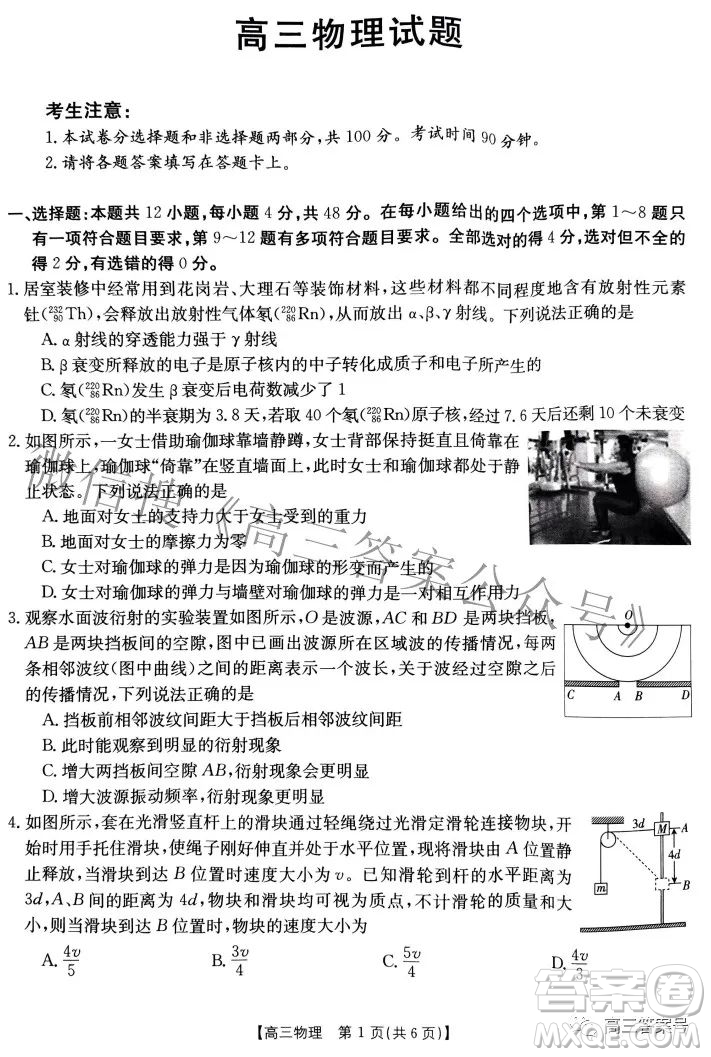 高三物理试题
考生注意:
1.本试卷分选择题和非选择题两部分,共 100 分。考试时间 90 分钟。
2.请将各题答案填写在答题卡上。
一、选择题:本题共 12 小题,每小题 4 分,共 48 分。在每小题给出的四个选项中,第 1~8 题只
有一项符合题目要求,第 9~12 题有多项符合题目要求。全部选对的得 4 分,选对但不全的
得 2 分,有选错的得 0 分。
1.居室装修中经常用到花岗岩、大理石等装饰材料,这些材料都不同程度地含有放射性元素
钍(²³²₉₀Th),会释放出放射性气体氡(²²⁰₈₆Rn),放出 α、β、γ 射线。下列说法正确的是
A.α 射线的穿透能力强于 γ 射线
B.β 衰变所释放的电子是原子核内的中子转化成质子和电子所产生的
C.氡(²²⁰₈₆Rn)发生 β 衰变后电荷数减少了 1
D.氡(²²⁰₈₆Rn)的半衰期为 3.8 天,若取 40 个氡(²²⁰₈₆Rn)原子核,经过 7.6 天后还剩 10 个未衰变
2.如图所示,一女士借助瑜伽球靠墙静蹲,女士背部保持挺直且倚靠在
瑜伽球上,瑜伽球“倚靠”在竖直墙面上,此时女士和瑜伽球都处于静
止状态。下列说法正确的是
A.地面对女士的支持力大于女士受到的重力
B.地面对女士的摩擦力为零
C.女士对瑜伽球的弹力是因为瑜伽球的形变而产生的
D.女士对瑜伽球的弹力与墙壁对瑜伽球的弹力大小相等
3.观察水面波衍射的实验装置如图所示,O 是波源,AC 和 BD 是两块挡板,
AB 是两块挡板间的空隙,图中已画出波源所在区域波的传播情况,每两
条相邻波纹(图中曲线)之间的距离表示一个波长,关于波经过空隙之后
的传播情况,下列说法正确的是
O
C A B D
A.挡板前相邻波纹间距大于挡板后相邻波纹间距
B.此时能观察到明显的衍射现象
C.增大两挡板间空隙 AB,衍射现象会更明显
D.增大波源振动频率,衍射现象会更明显
4.如图所示,套在光滑竖直杆上的滑块通过轻绳绕过光滑定滑轮连接物块,开
始时用手托住滑块,使绳子刚好伸直并处于水平位置,现将滑块由 A 位置静
止释放,当滑块到达 B 位置时速度大小为 v。已知滑轮到杆的距离为
3d,A、B 间的距离为 4d,物块和滑块均可视为质点,不计滑轮的大小及质
量,则当滑块到达 B 位置时,物块的速度大小为
3d M A
4d
m B
A.4v/5 B.3v/4 C.5v/4 D.4v/3
【高三物理 第 1 页(共 6 页)】
微信搜《高三答案公众号》
答案卷
高三答案号